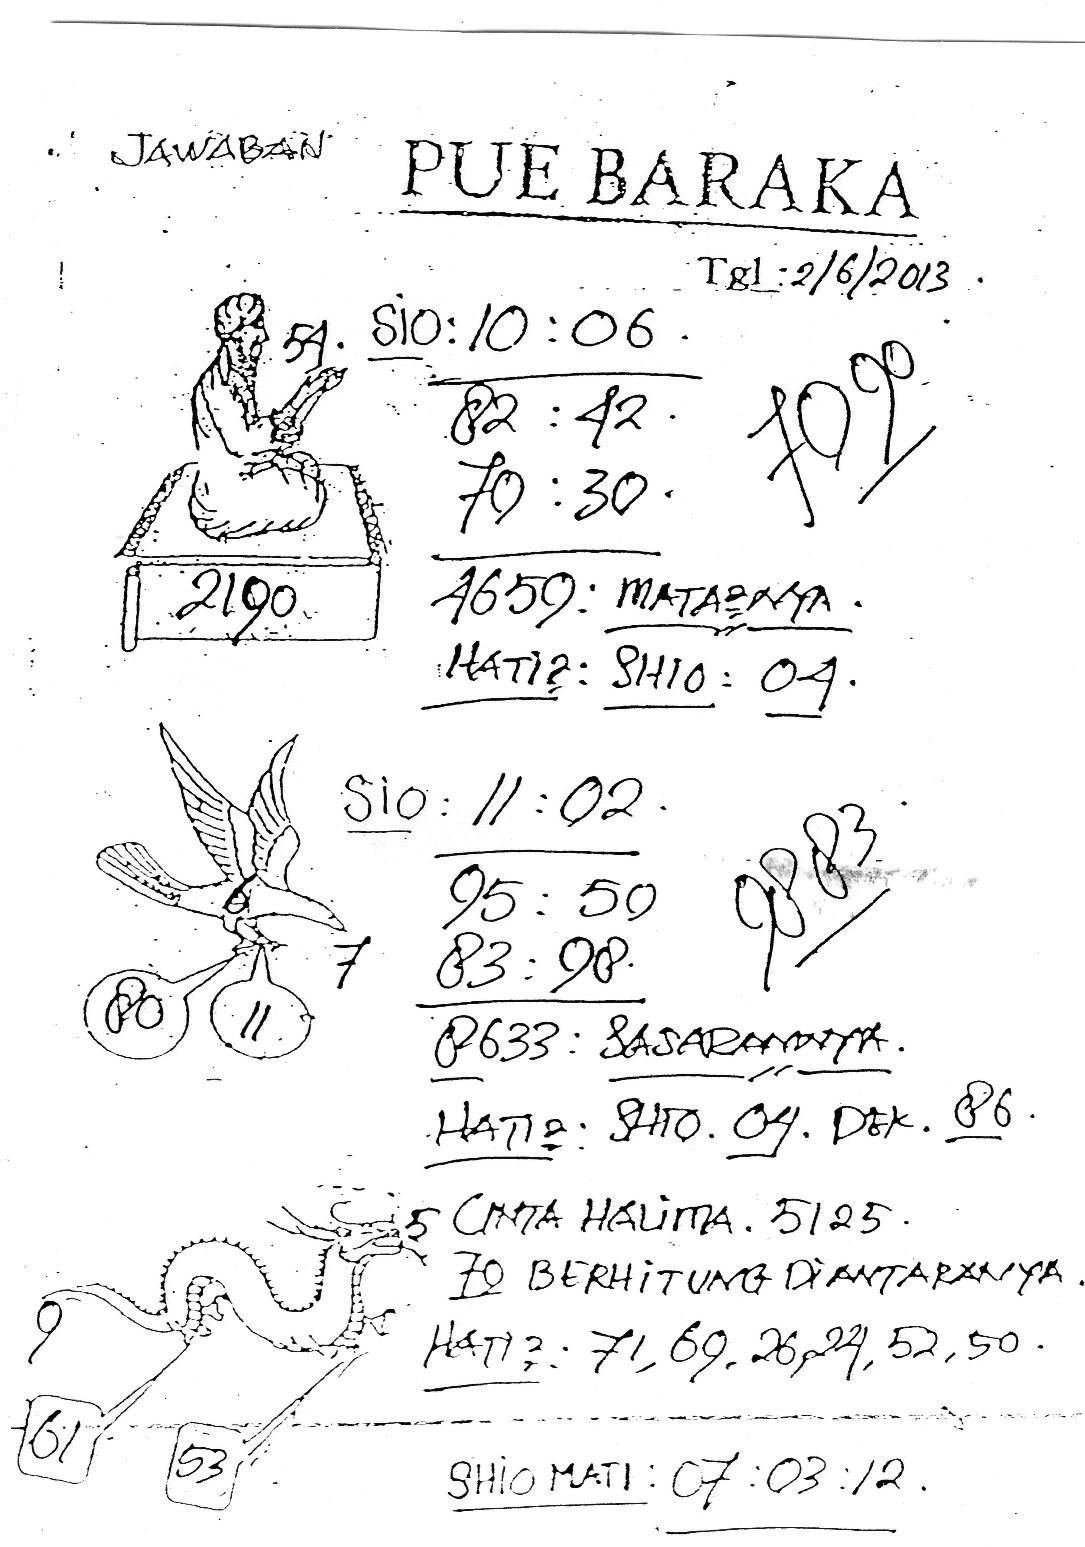 JAWABAN PUE BARAKA
Tgl : 2/6/2013 .
54. SiO : 10 : 06 .
82 : 42 .
7090
70 : 30 .
2190
4659 : MATA2NYA .
HATI2 : SHIO : 04 .
SiO : 11 : 02 .
95 : 50
9883
7
83 : 98.
80 11
8633 : SASARANNYA .
HATI2 : SHIO . 04 . DEK . 86 .
5 CINTA HALIMA . 5125 .
70 BERHITUNG DIANTARANYA .
9
HATI2 : 71, 69, 26, 24, 52, 50 .
61
53
SHIO MATI : 07 : 03 : 12 .